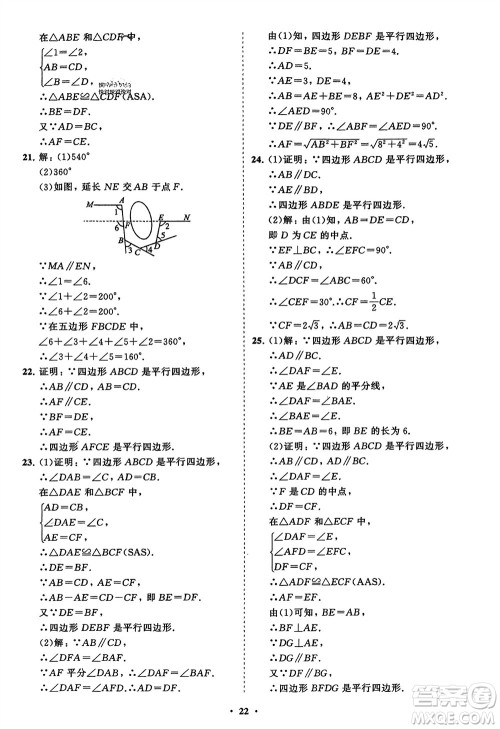 在△ABE 和△CDF 中,
∠1=∠2,
AB=CD,
∠B=∠D,
∴△ABE≌△CDF(ASA).
∴BE=DF.
又∵AD=BC,
∴AF=CE.
21. 解：(1)540°
(2)360°
(3)如图，延长 NE 交 AB 于点 F.
M A
1
6 F E N
B 3 C 4 D 5
∵MA∥EN,
∴∠1+∠2=∠1+∠2=200°,
∵∠1+∠2=200°,
∵在五边形 FBCDE 中,
∠6+∠3+∠4+∠5+∠2=360°,
∴∠3+∠4+∠5=160°.
22. 证明：∵四边形 ABCD 是平行四边形,
∴AB∥CD，AB=CD.
∴AF∥CE.
∵BF=DE,
∴AF=CE.
∴四边形 AFCE 是平行四边形.
23. (1)证明：∵四边形 ABCD 是平行四边形,
∴∠A=∠C，AB=CD.
在△DAE 和△BCF 中,
AD=CB,
∠DAE=∠C,
AE=CF,
∴△DAE≌△BCF(SAS).
∴DE=BF.
∴AB-AE=CD-CF，即 BE=DF.
又∵DE=BF,
∴四边形 DEBF 是平行四边形.
(2)解：∵AB∥CD,
∴∠DFA=∠BAF.
∵AF 平分∠DAB，∴∠DAF=∠BAF.
∴∠DAF=∠DFA.
∴AD=DF.
由(1)知，四边形 DEBF 是平行四边形,
∴DF=BE=5，BF=DE=4.
∴AD=5.
∵AE=3，DE=4,
∴AB=AE+BE=8，AE²+DE²=AD².
∴DE⊥AB.
∵DE∥BF，∴BF⊥AB.
∴AF=√AB²+BF²=√8²+4²=4√5.
24. (1)证明：∵四边形 ABCD 是平行四边形,
∴AB∥CD，AB=CD.
∵AE∥BD,
∴四边形 ABDE 是平行四边形.
(2)解：由(1)知，AB=DE=CD,
即 D 为 CE 的中点.
∵EF⊥BC，∴∠EFC=90°.
∵AB∥CD，∴∠DCF=∠ABC=60°.
∴∠CEF=30°. ∴CF=1/2CE.
∵CF=2√3，∴AB=CD=2√3.
25. (1)解：∵四边形 ABCD 是平行四边形,
∴AD∥BC.
∴∠DAF=∠E.
∵AE 是∠BAD 的平分线,
∴∠DAF=∠BAE.
∴∠BAE=∠E.
∴BE=AB=6，即 BE 的长为 6.
(2)证明：∵四边形 ABCD 是平行四边形,
∴AD∥BC.
∴∠DAF=∠E.
∵F 是 CD 的中点,
∴DF=CF.
在△ADF 和△ECF 中,
∠DAF=∠E,
∠AFD=∠EFC,
DF=CF,
∴△ADF≌△ECF(AAS).
∴AF=EF.
由(1)可知，BE=AB,
∴BF⊥AE.
∵DG⊥AF,
∴DG∥BF.
∴四边形 BFDG 是平行四边形.
• 22 •